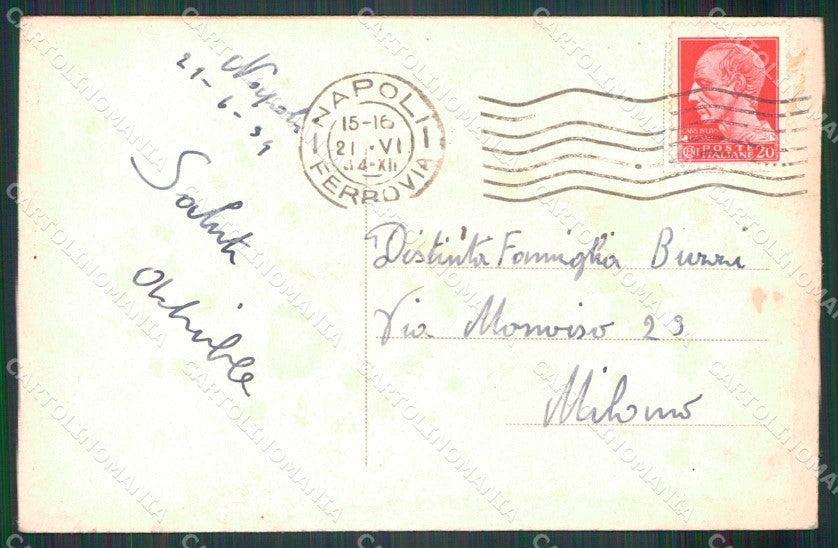 Napoli
21-6-34
NAPOLI
15-16
21 VI
34-XII
FERROVIA
POSTE
ITALIANE 20
Saluti
Distinta Famiglia Buzzi
Via Monviso 23
Milano
CARTOLINOMANIA